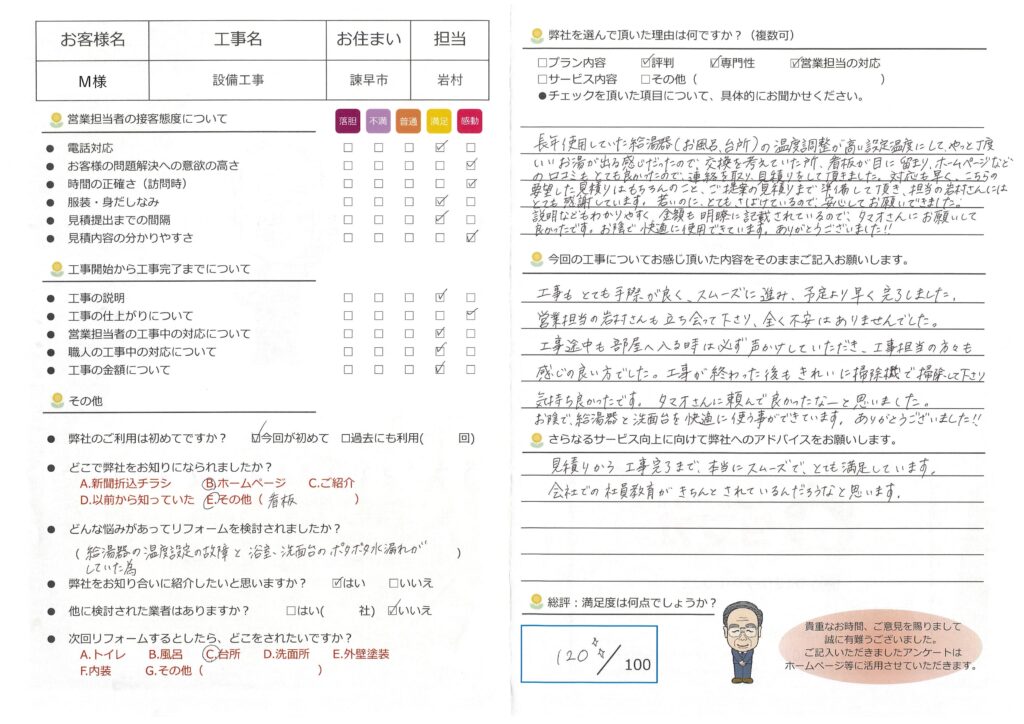 お客様名 工事名 お住まい 担当
M様 設備工事 諫早市 岩村
営業担当者の接客態度について
落胆 不満 普通 満足 感動
● 電話対応 □ □ □ ☑ □
● お客様の問題解決への意欲の高さ □ □ □ □ ☑
● 時間の正確さ（訪問時） □ □ □ □ ☑
● 服装・身だしなみ □ □ □ ☑ □
● 見積提出までの間隔 □ □ □ ☑ □
● 見積内容の分かりやすさ □ □ □ □ ☑
工事開始から工事完了までについて
● 工事の説明 □ □ □ ☑ □
● 工事の仕上がりについて □ □ □ □ ☑
● 営業担当者の工事中の対応について □ □ □ ☑ □
● 職人の工事中の対応について □ □ □ ☑ □
● 工事の金額について □ □ □ ☑ □
その他
● 弊社のご利用は初めてですか？ ☑今回が初めて □過去にも利用( 回)
● どこで弊社をお知りになられましたか？
A.新聞折込チラシ B.ホームページ C.ご紹介
D.以前から知っていた E.その他（ 看板 ）
● どんな悩みがあってリフォームを検討されましたか？
( 給湯器の温度設定の故障と浴室、洗面台のポタポタ水漏れが )
していた為
● 弊社をお知り合いに紹介したいと思いますか？ ☑はい □いいえ
● 他に検討された業者はありますか？ □はい( 社) ☑いいえ
● 次回リフォームするとしたら、どこをされたいですか？
A.トイレ B.風呂 C.台所 D.洗面所 E.外壁塗装
F.内装 G.その他（ ）
弊社を選んで頂いた理由は何ですか？（複数可）
□プラン内容 ☑評判 ☑専門性 ☑営業担当の対応
□サービス内容 □その他（ ）
●チェックを頂いた項目について、具体的にお聞かせください。
長年使用していた給湯器(お風呂、台所)の温度調整が高い設定温度にして、やっと丁度
いいお湯が出る感じだったので、交換を考えていた所、看板が目に留まり、ホームページなど
の口コミもとても良かったので、連絡を取り、見積りをして頂きました。対応も早く、こちらの
要望した見積りはもちろんのこと、ご提案の見積りまで準備して頂き、担当の岩村さんには
とても感謝しています。若いのに、とてもさばけているので、安心してお願いできました。
説明などもわかりやすく、金額も明瞭に記載されているので、タマオさんにお願いして
良かったです。お陰で快適に使用できています。ありがとうございました!!
今回の工事についてお感じ頂いた内容をそのままご記入お願いします。
工事もとても手際が良く、スムーズに進み、予定より早く完了しました。
営業担当の岩村さんも立ち会って下さり、全く不安はありませんでした。
工事途中も部屋へ入る時は必ず声かけしていただき、工事担当の方々も
感じの良い方でした。工事が終わった後もきれいに掃除機で掃除して下さり
気持ち良かったです。タマオさんに頼んで良かったなーと思いました。
お陰で、給湯器と洗面台を快適に使う事ができています。ありがとうございました!!
さらなるサービス向上に向けて弊社へのアドバイスをお願いします。
見積りから工事完了まで、本当にスムーズで、とても満足しています。
会社での社員教育がきちんとされているんだろうなと思います。
総評：満足度は何点でしょうか？
120/100
貴重なお時間、ご意見を賜りまして
誠に有難うございました。
ご記入いただきましたアンケートは
ホームページ等に活用させていただきます。